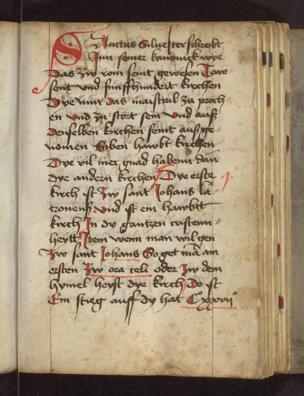 Sanctus Siluester schreibt
Inn seiner kanonick wye
Das zw rom seint gewesen Taw
sent vnd funffhundert kirchen
Dye nun das maisttail zu proch
en vnd zu stort sein vnd auß
denselben kirchen seint außge
nomen Siben hawbt kirchen
Dye vil mer gnad habenn dan
dye andern kirchen Dye erste
kirch ist zw sant Johans la
tronens vnd ist ein hawbtt
kirch In der gantzen cristenn
heytt Item wenn man wil gen
zw sant Johans So get man am
ersten zw ara celi oder zw dem
hymel heyst dye kirch Do ist
Ein stieg auff dy hat Cxxvii